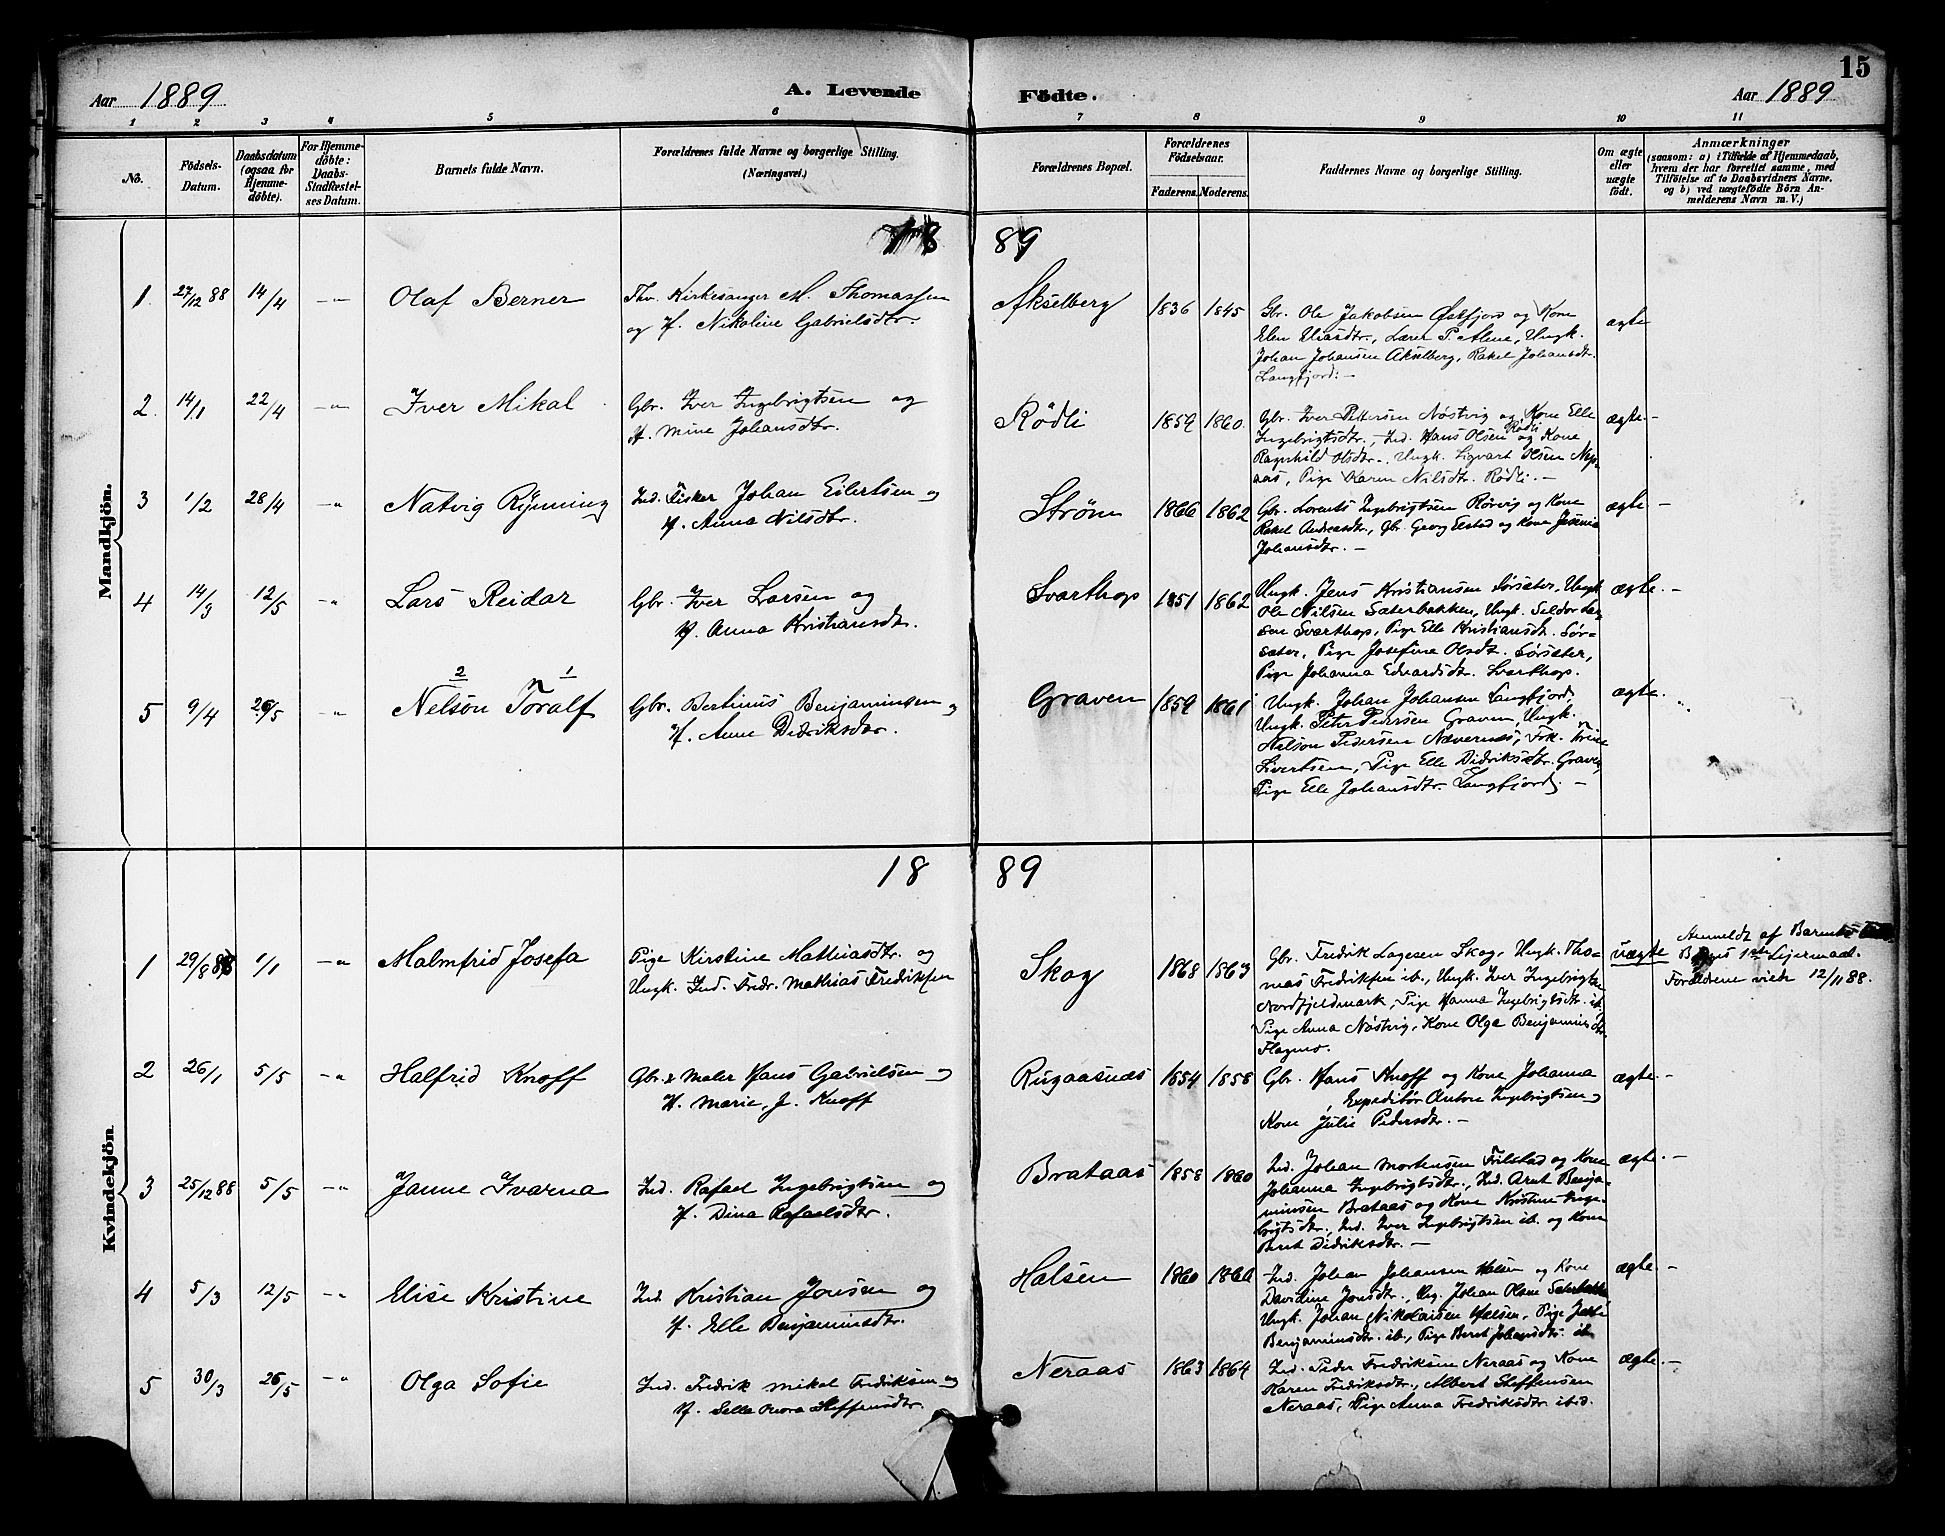 15
Aar 1889
A. Levende
Födte.
Aar 1889
1 2 3 4 5 6 7 8 9 10 11
No.
Födsels-Datum.
Daabsdatum (ogsaa for Hjemmedöbte).
For Hjemmedöbte: Daabs-Stadfestelses Datum.
Barnets fulde Navn.
Forældrenes fulde Navne og borgerlige Stilling.
(Næringsvei.)
Forældrenes Bopæl.
Forældrenes Födselsaar.
Faderens. Moderens.
Faddernes Navne og borgerlige Stilling.
Om ægte eller uægte födt.
Anmærkninger
(saasom: a) i Tilfælde af Hjemmedaab,
hvem der har forrettet samme, med
Tilföielse af to Daabsvidners Navne,
og b) ved uægtefödte Börn Anmelderens Navn m. V.)
Mandkjön.
18 89
1. 27/12 88 14/4 -"- Olaf Berner
Thv. Kirkesanger M. Thomassen
og H. Nikoline Gabrielsdtr.
Akselberg 1836 1845
Gbr. Ole Jakobsen Østfjord og Kone
Elen, Lærer P. Alme, Ungk.
Johan Johansen Akselberg, Rakel Johansdtr.
Langfjord. —
ægte
2. 14/1 22/4 -"- Iver Mikal
Gbr. Iver Ingebrigtsen og
H. Mine Johansdtr.
Rödli 1859 1860.
Gbr. Iver Pettersen Nöstvig og Kone Elle
Ingebrigtsdtr., Ind. Hans Olsen Rödli og Kone
Ragnhild Olsdtr., Ungk. Sigvart Olsen Nep-
aas, Pige Karen Nilsdtr. Rödli. —
ægte. —
3 1/2 28/4 -"- Natvig Rynning
Ind. Fisker Johan Eilertsen og
H. Anna Nilsdtr.
Ström 1866 1862
Gbr. Lorents Ingebrigtsen Rörvig og Kone
Rakel Andreasdtr., Gbr. Georg Elstad og Kone Jesenia
Johansdtr. —
ægte —
4 14/3 12/5 -"- Lars Reidar
Gbr. Iver Larsen og
H. Anna Kristiansdt.
Svarthop 1851 1862
Ungk. Jens Kristiansen Sörsæter, Ungk.
Ole Nilsen Sæterbakken, Ungk. Seldor Lar-
sen Svarthop, Pige Elle Kristiansdt. Sör-
sæter, Pige Josefine Olsdt. Sörsæter,
Pige Johanna Edvardsdt. Svarthop.
ægte. —
2 1
5 9/4 26/5 -"- Nelson Toralf
Gbr. Bertinus Benjaminsen og
H. Anne Didriksdtr.
Graven 1859 1861
Ungk. Johan Johansen Langfjord,
Ungk. Peter Pedersen Graven, Ungk.
Nelson Pedersen Nævernes, Frk. Trine
Sivertsen, Pige Elle Didriksdtr. Graven,
Pige Elle Johansdtr. Langfjord. —
ægte. "
Kvindekjön.
18 89
1 29/8 88 1/1 -"- Malmfrid Josefa
Pige Kirstine Mathiasdtr. og
Ungk. Ind. Fredr. Mathias Fredriksen
Skog 1868 1863
Gbr. Fredrik Lagesen Skog, Ungk. Tho-
mas Fredriksen ib., Ungk. Iver Ingebrigtsen
Nordfjeldmark, Pige Hanna Ingebrigtsdt. ib.
Pige Anna Nöstvig, Kone Olga Benjaminsdtr.
Flagmo.
uægte
Anmeldt af Barnets
Begges 1ste Lejermaal.
Forældrene viede 12/11 88.
2 26/1 5/5 -"- Halfrid Knoff
Gbr. & Maler Hans Gabrielsen og
H. Marie, J. Knoff
Rugaasnæs 1854 1858
Gbr. Hans Knoff og Kone Johanna
Expeditör Anton Ingebrigtsen og
Kone Julie Pedersdtr. —
ægte. —
3 25/12 88 5/5 -"- Janne Ivarna
Ind. Rafael Ingebrigtsen og
H. Dina Rafaelsdtr.
Brataas 1858 1860
Ind. Johan Mortensen Frilstad og Kone
Johanna Ingebrigtsdtr., Ind. Arnt Benja-
minsen Brataas og Kone Kristine Inge-
brigtsdtr., Ind. Iver Ingebrigtsen ib. og Kone
Berit Didriksdtr. —
ægte. —
4 5/3 12/5 -"- Elise Kristine
Ind. Kristian Jonsen og
H. Elle Benjaminsdtr.
Halsen 1860 1860
Ind. Johan Johansen Holm og Kone
Davidine Jonsdtr., Ung. Johan Olsen
Ungk. Johan Nikolaisen Halsen, Pige
Benjaminsdtr. ib., Pige Berit Johansdtr. ib
ægte. —
5 30/3 26/5 -"- Olga Sofie
Ind. Fredrik Mikal Fredriksen og
H. Steffensdtr.
Neraas 1863 1864
Ind. Peder Fredriksen Neraas og Kone
Karen Fredriksdtr., Albert Steffensen
Neraas, Pige Anna Fredriksdtr ibid.
ægte. —